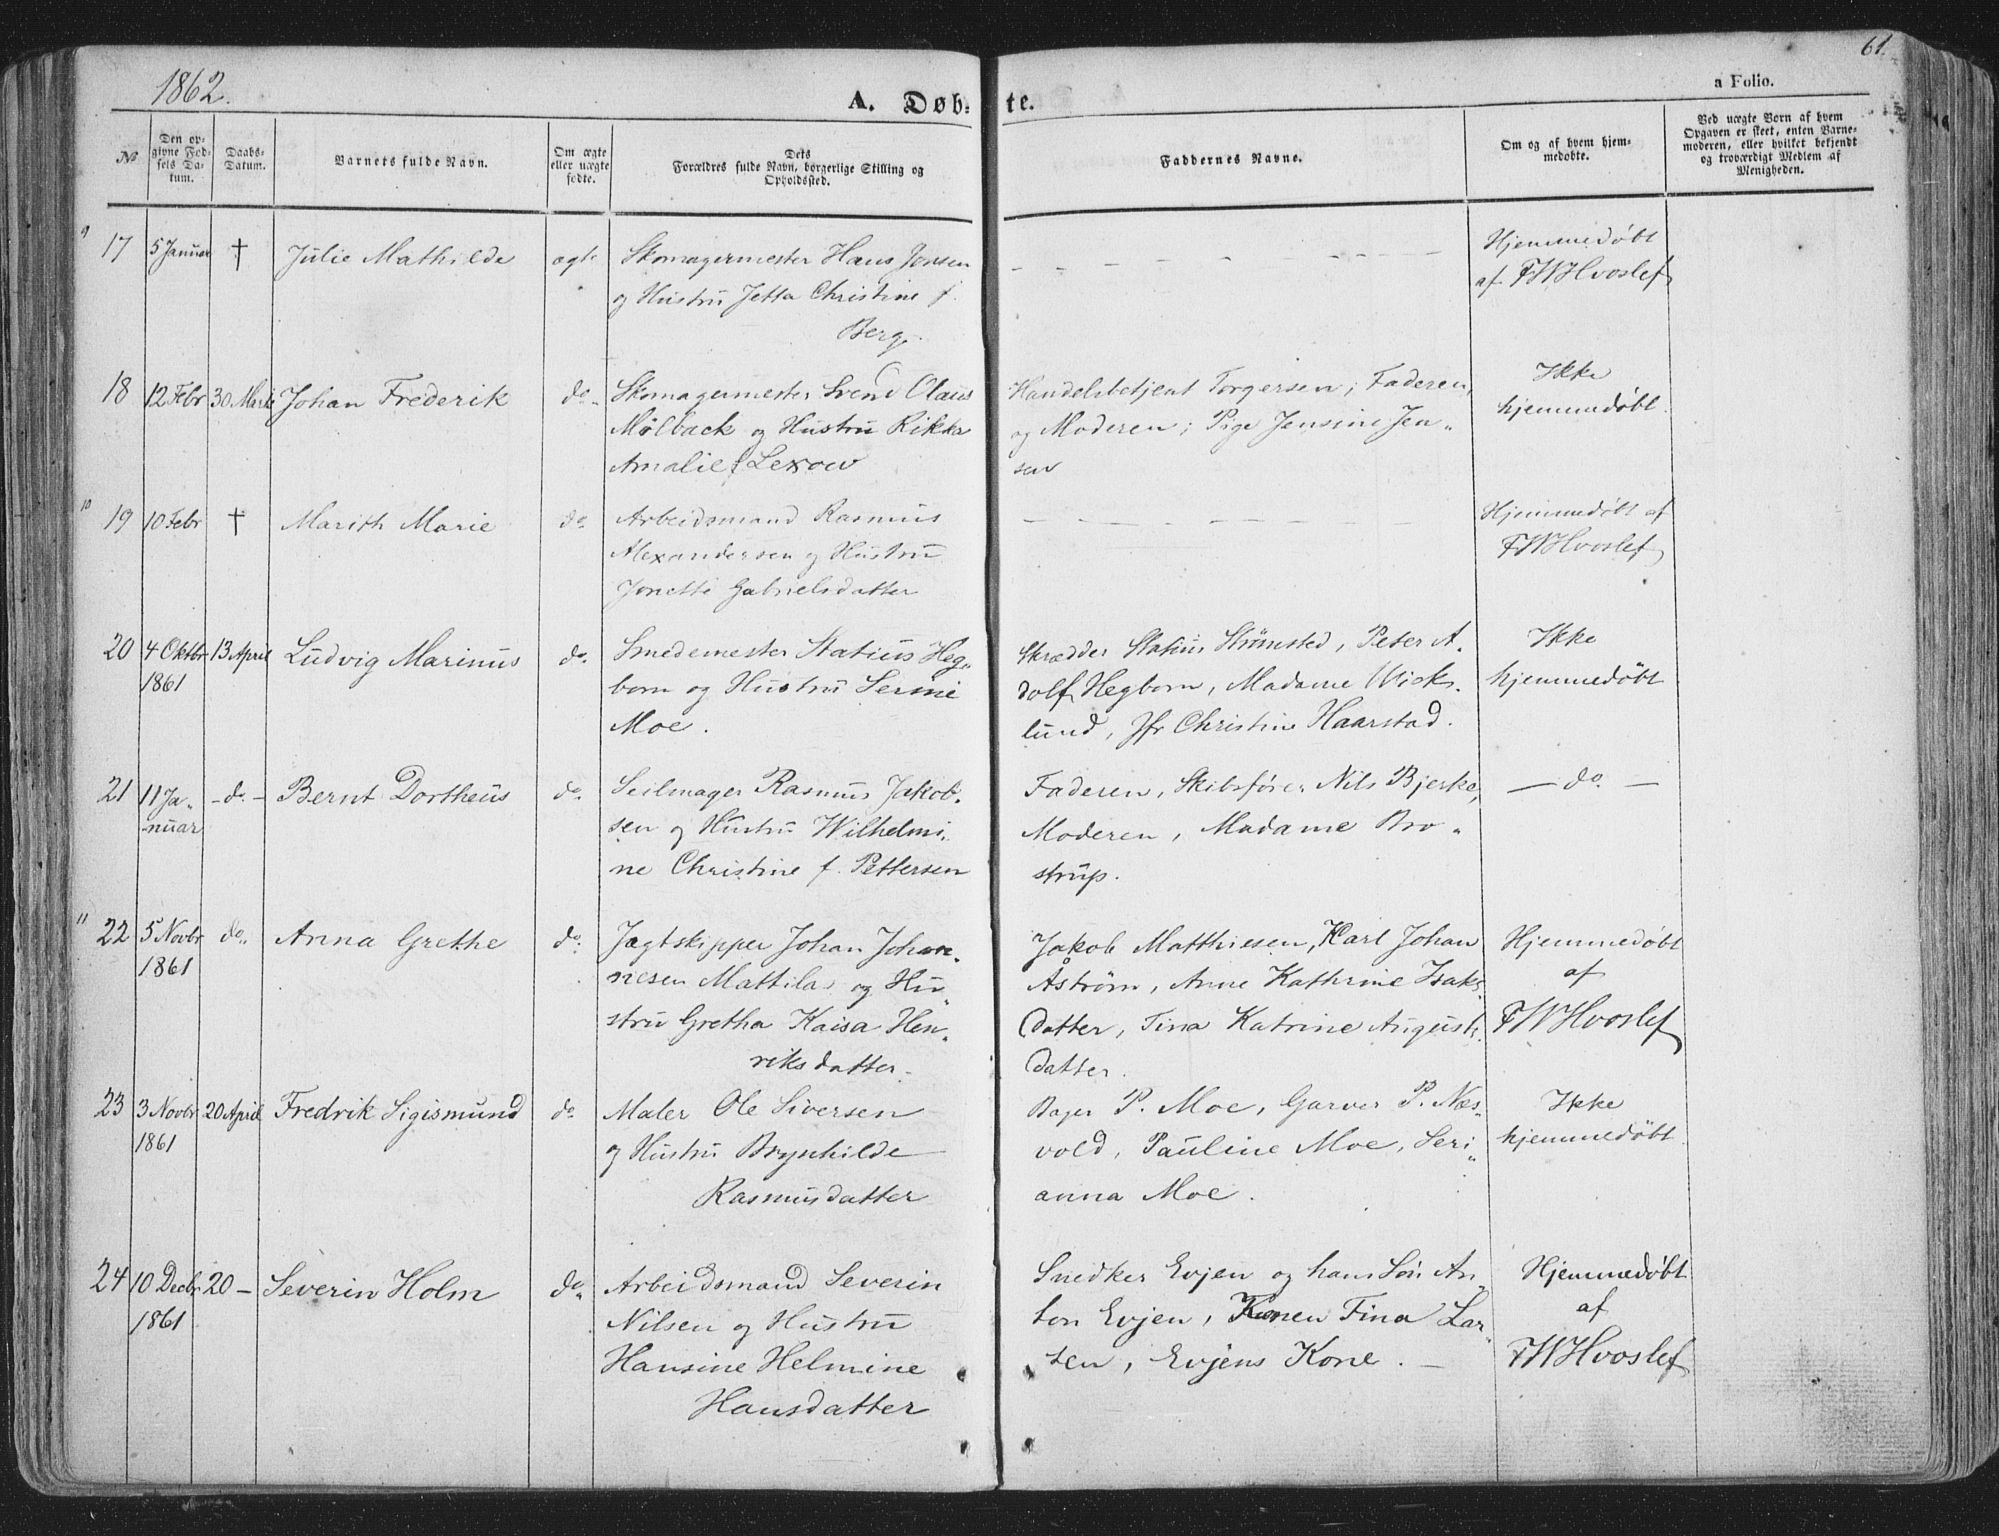 1862.
61.
A. Døbte.
a Folio.
No
Den opgivne Fødsels Datum.
Daabs-Datum.
Barnets fulde Navn.
Om ægte eller uægte fødte.
Dets Forældres fulde Navn, borgerlige Stilling og Opholdssted.
Faddernes Navne.
Om og af hvem hjemmedøbte.
Ved uægte Børn af hvem Opgaven er skeet, enten Barnemoderen, eller hvilket bekjendt og troværdigt Medlem af Menigheden.
9 17 5 Januar † Julie Mathilde ægte Skomagermester Hans Jonsen
og Hustru Jetta Christine f.
Berg.
Hjemmedøbt
af FWHvoslef
18 12 Febr 30 Marts Johan Frederik do. Skomagermester Svend Olaus
Mølback og Hustru Rikka
Amalie f Lexow
Handelsbetjent Torgersen, Faderen,
og Moderen; Pige Jensine Jen-
sen
Ikke
hjemmedøbt.
10 19 10 Febr † Marith Marie do. Arbeidsmand Rasmus
Alexandersen og Hustru
Jonette Gabrielsdatter
Hjemmedøbt af
FWHvoslef
20 4 Oktbr 13 April Ludvig Marinus do. Smedemester Statius Heg-
1861 born og Hustru Serine
Moe.
Skrædder Statius Strømsted, Peter A.
dolf Hegborn, Madame Wick-
lund, Jfr Christine Haarstad.
Ikke
hjemmedøbt
21 11 Ja- - do. - Bernt Dortheus do. Seilmager Rasmus Jakob-
nuar sen og Hustru Wilhelmi-
ne Christine f. Pettersen
Faderen, Skibsfører Nils Bjerke,
Moderen, Madame Bro-
strup.
- do. -
11 22 5 Novbr do. Anna Grethe do. Jagtskipper Johan Johan-
1861 nesen Mattila og Hu-
stru Gretha Kaisa Hen-
riksdatter.
Jakob Matthiesen, Karl Johan
Åström, Anne Kathrine Isaks-
datter, Tina Katrine Augusts-
datter.
Hjemmedøbt
af
FWHvoslef
23 3 Novbr 20 April Fredrik Sigismund do. Maler Ole Siversen
1861 og Hustru Brynhilde
Rasmusdatter
Bager P. Moe, Garver P. Næs-
vold, Pauline Moe, Seri-
anna Moe.
Ikke
hjemmedøbt.
24 10 Decbr 20 - Severin Holm do. Arbeidsmand Severin
1861 Nilsen og Hustru
Hansine Helmine
Hansdatter
Snedker Evjen og hans Søn An-
ton Evjen, Konen Fina Lar-
sen, Evjens Kone. -
Hjemmedøbt
af
FWHvoslef